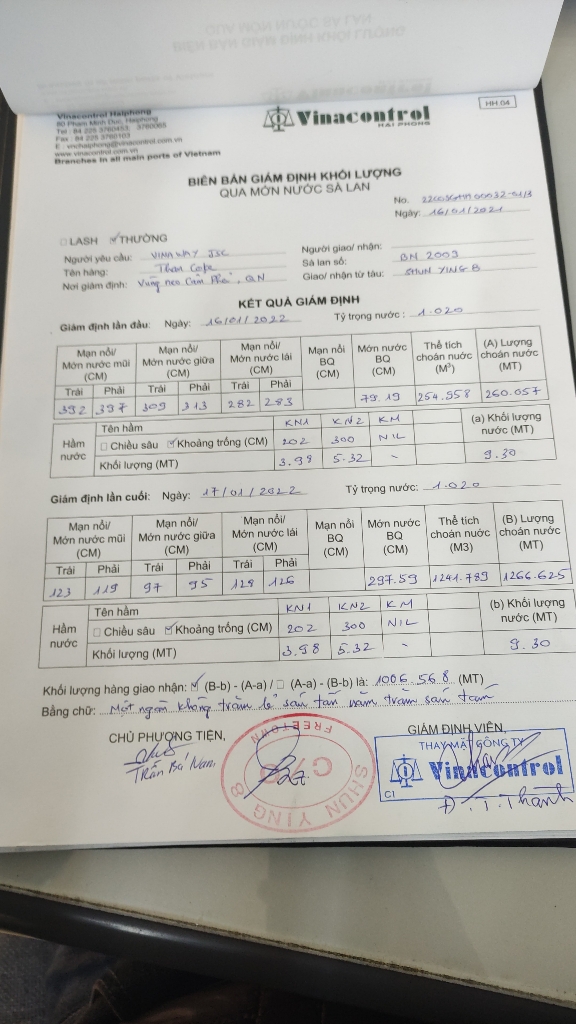 Vinacontrol Haiphong
80 Pham Minh Duc, Haiphong
Tel : 84 225 3760453; 3760065
Fax : 84 225 3760103
E : vnchaiphong@vinacontrol.com.vn
www.vinacontrol.com.vn
Branches in all main ports of Vietnam
Vinacontrol
HẢI PHÒNG
HH.04
BIÊN BẢN GIÁM ĐỊNH KHỐI LƯỢNG
QUA MỚN NƯỚC SÀ LAN
No.
Ngày: 16/01/2021
LASH THƯỜNG
Người yêu cầu: VINAWAY JSC
Người giao/ nhận:
Tên hàng: Than Coke
Sà lan số: BN 2009
Nơi giám định: Vùng neo Cẩm Phả, QN
Giao/ nhận từ tàu: SHUN YING 8
KẾT QUẢ GIÁM ĐỊNH
Giám định lần đầu: Ngày: 16/01/2022 Tỷ trọng nước : 1.020
Mạn nổi/ Mớn nước mũi (CM) Mạn nổi/ Mớn nước giữa (CM) Mạn nổi/ Mớn nước lái (CM) Mạn nổi BQ (CM) Mớn nước BQ (CM) Thể tích choán nước (M³) (A) Lượng choán nước (MT)
Trái Phải Trái Phải Trái Phải
392 397 309 313 282 283 79.19 254.958 260.057
Hầm nước Tên hầm KN1 KN2 KM (a) Khối lượng nước (MT)
Chiều sâu Khoảng trống (CM) 202 300 NIL
Khối lượng (MT) 3.98 5.32 - 9.30
Giám định lần cuối: Ngày: 17/01/2022 Tỷ trọng nước: 1.020
Mạn nổi/ Mớn nước mũi (CM) Mạn nổi/ Mớn nước giữa (CM) Mạn nổi/ Mớn nước lái (CM) Mạn nổi BQ (CM) Mớn nước BQ (CM) Thể tích choán nước (M3) (B) Lượng choán nước (MT)
Trái Phải Trái Phải Trái Phải
123 119 97 95 128 126 297.59 1241.789 1266.625
Hầm nước Tên hầm KN1 KN2 KM (b) Khối lượng nước (MT)
Chiều sâu Khoảng trống (CM) 202 300 NIL
Khối lượng (MT) 3.98 5.32 - 9.30
Khối lượng hàng giao nhận: (B-b) - (A-a) / (A-a) - (B-b) là: 1006.568 (MT)
Bằng chữ: Một ngàn không trăm lẻ sáu tấn năm trăm sáu tám
CHỦ PHƯƠNG TIỆN,
GIÁM ĐỊNH VIÊN,
Trần Bá Nam
SHUN YING 8
C/O
FREETOWN
THAY MẶT CÔNG TY
Vinacontrol
CI
Đ.T.Thành